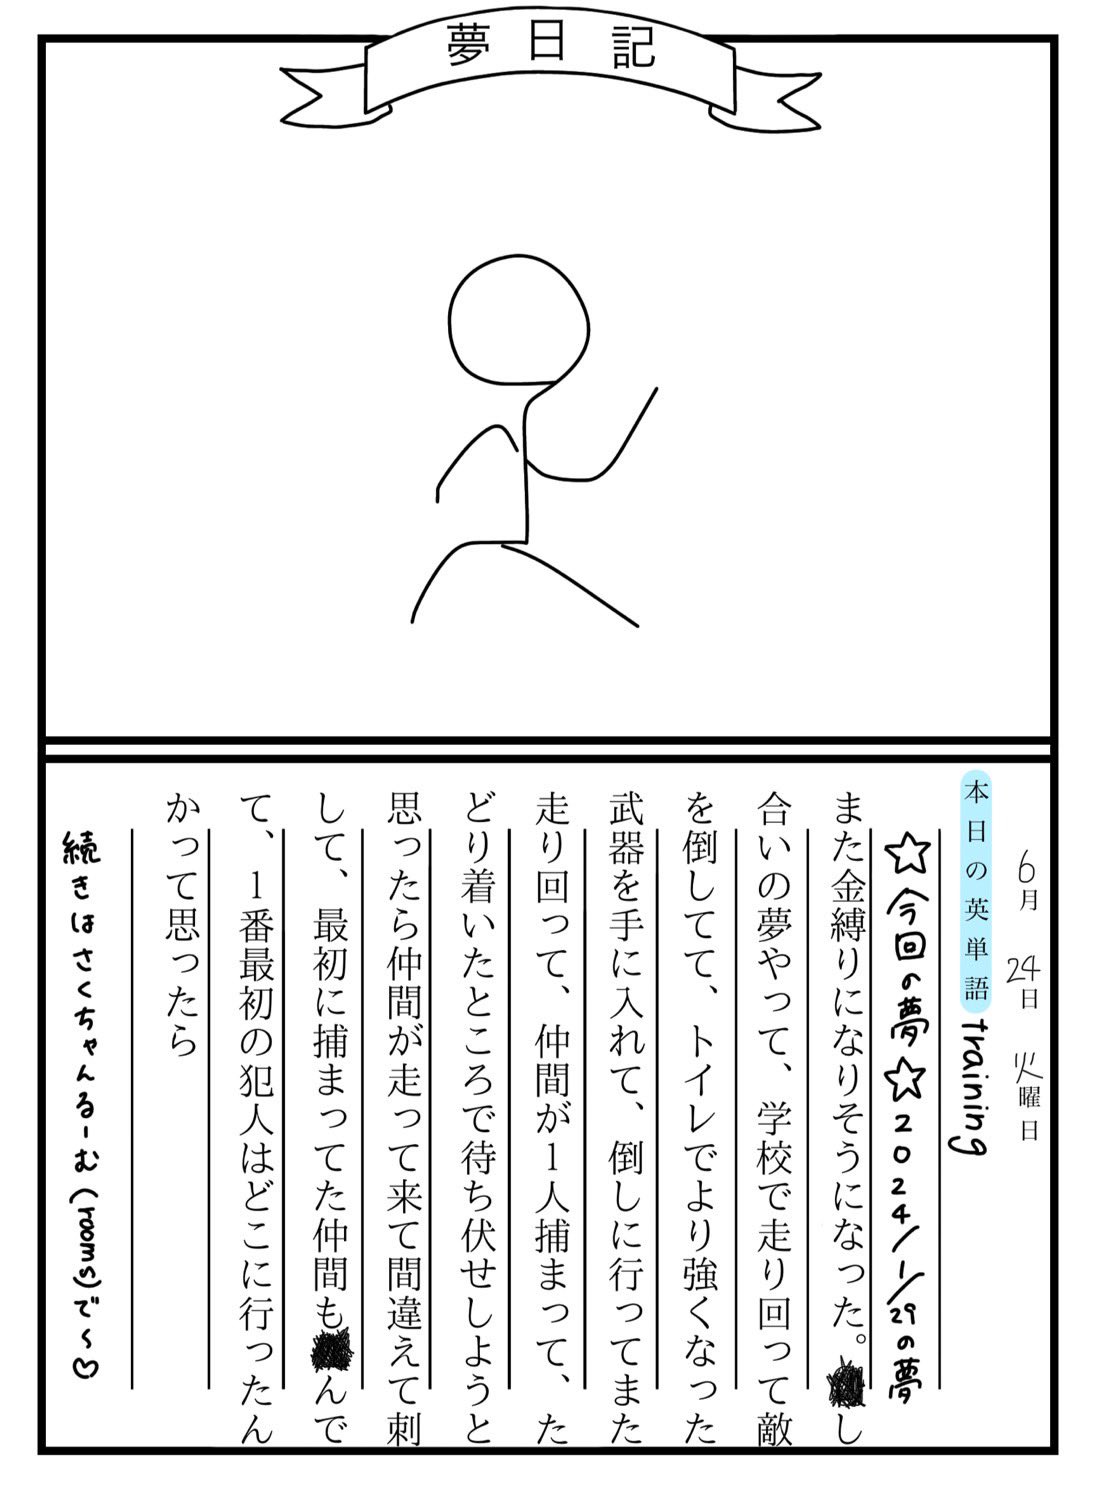 夢日記
6月 24日 火曜日
本日の英単語 training
☆今回の夢☆2024/1/29の夢
また金縛りになりそうになった。し
合いの夢やって、学校で走り回って敵
を倒してて、トイレでより強くなった
武器を手に入れて、倒しに行ってまた
走り回って、仲間が1人捕まって、た
どり着いたところで待ち伏せしようと
思ったら仲間が走って来て間違えて刺
して、最初に捕まってた仲間もんで
て、1番最初の犯人はどこに行ったん
かって思ったら
続きはさくちゃんるーむ(rooms)で〜♡